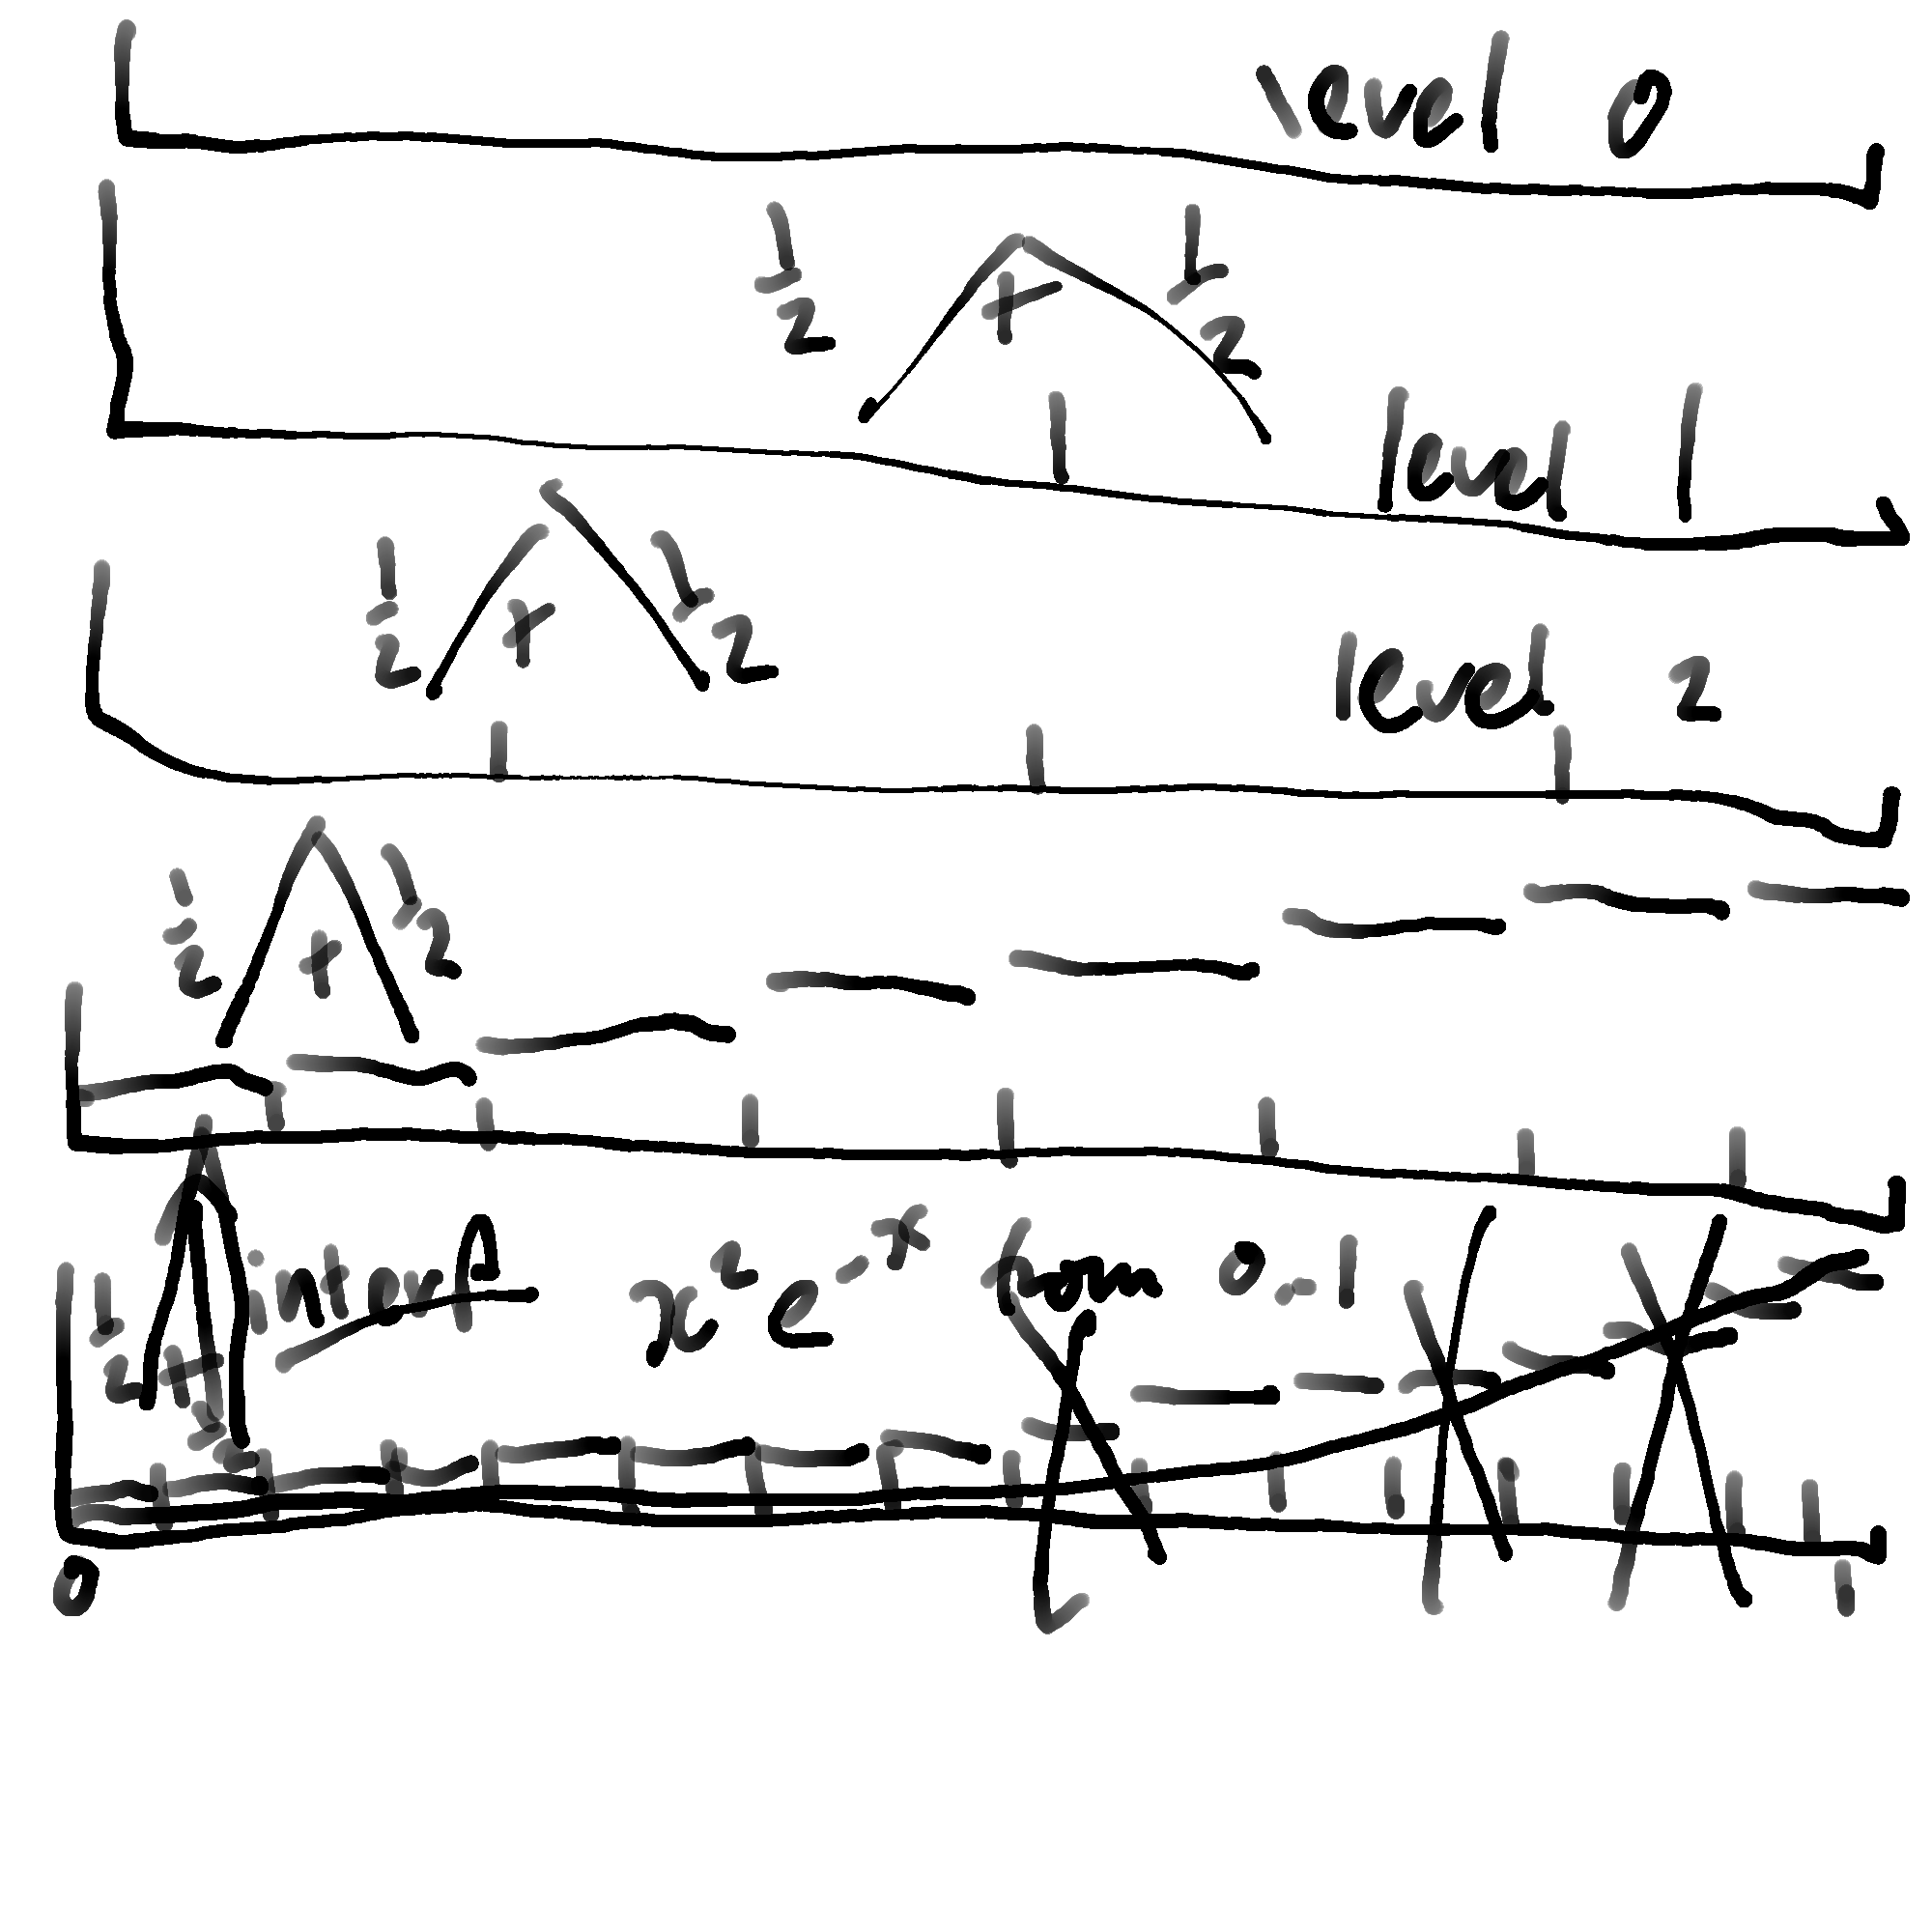 level 0
1/2 + 1/2
level 1
1/2 + 1/2
level 2
1/2 + 1/2
1/2 +
x²e⁻ˣ from 0..1
0 1